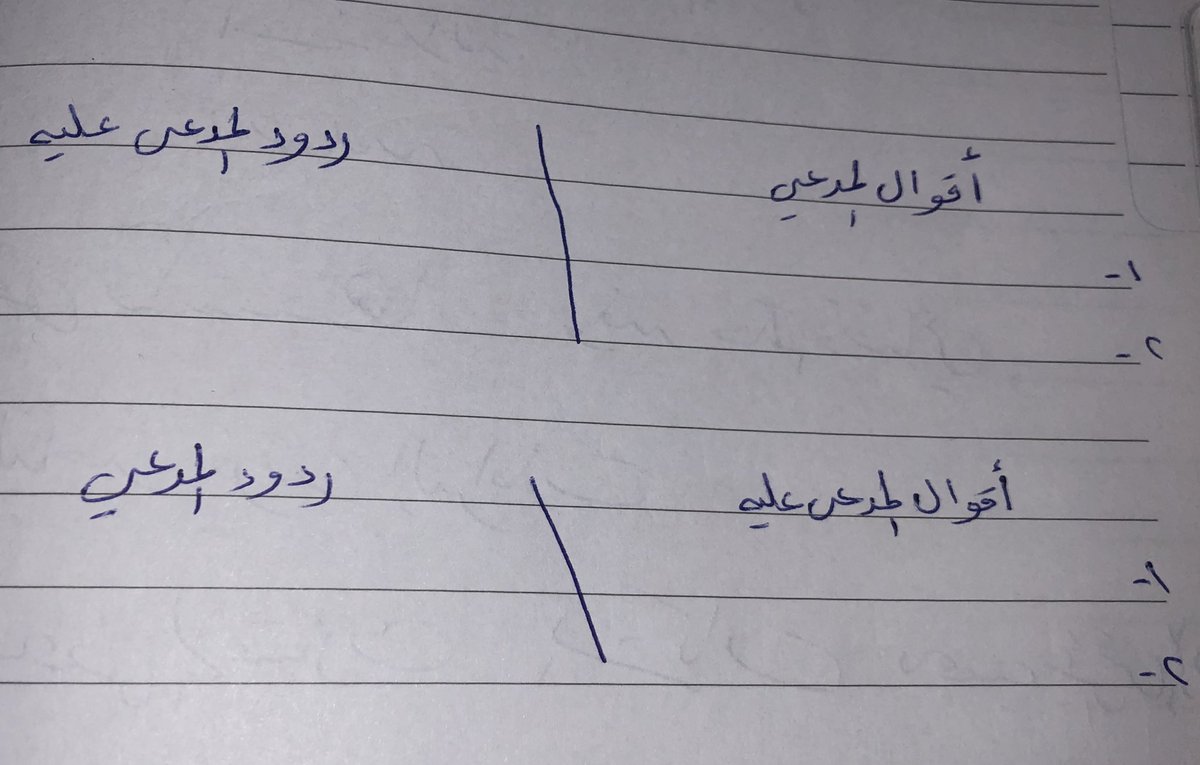 أقوال المدعي
ردود المدعى عليه
١-
٢-
أقوال المدعى عليه
ردود المدعي
١-
٢-